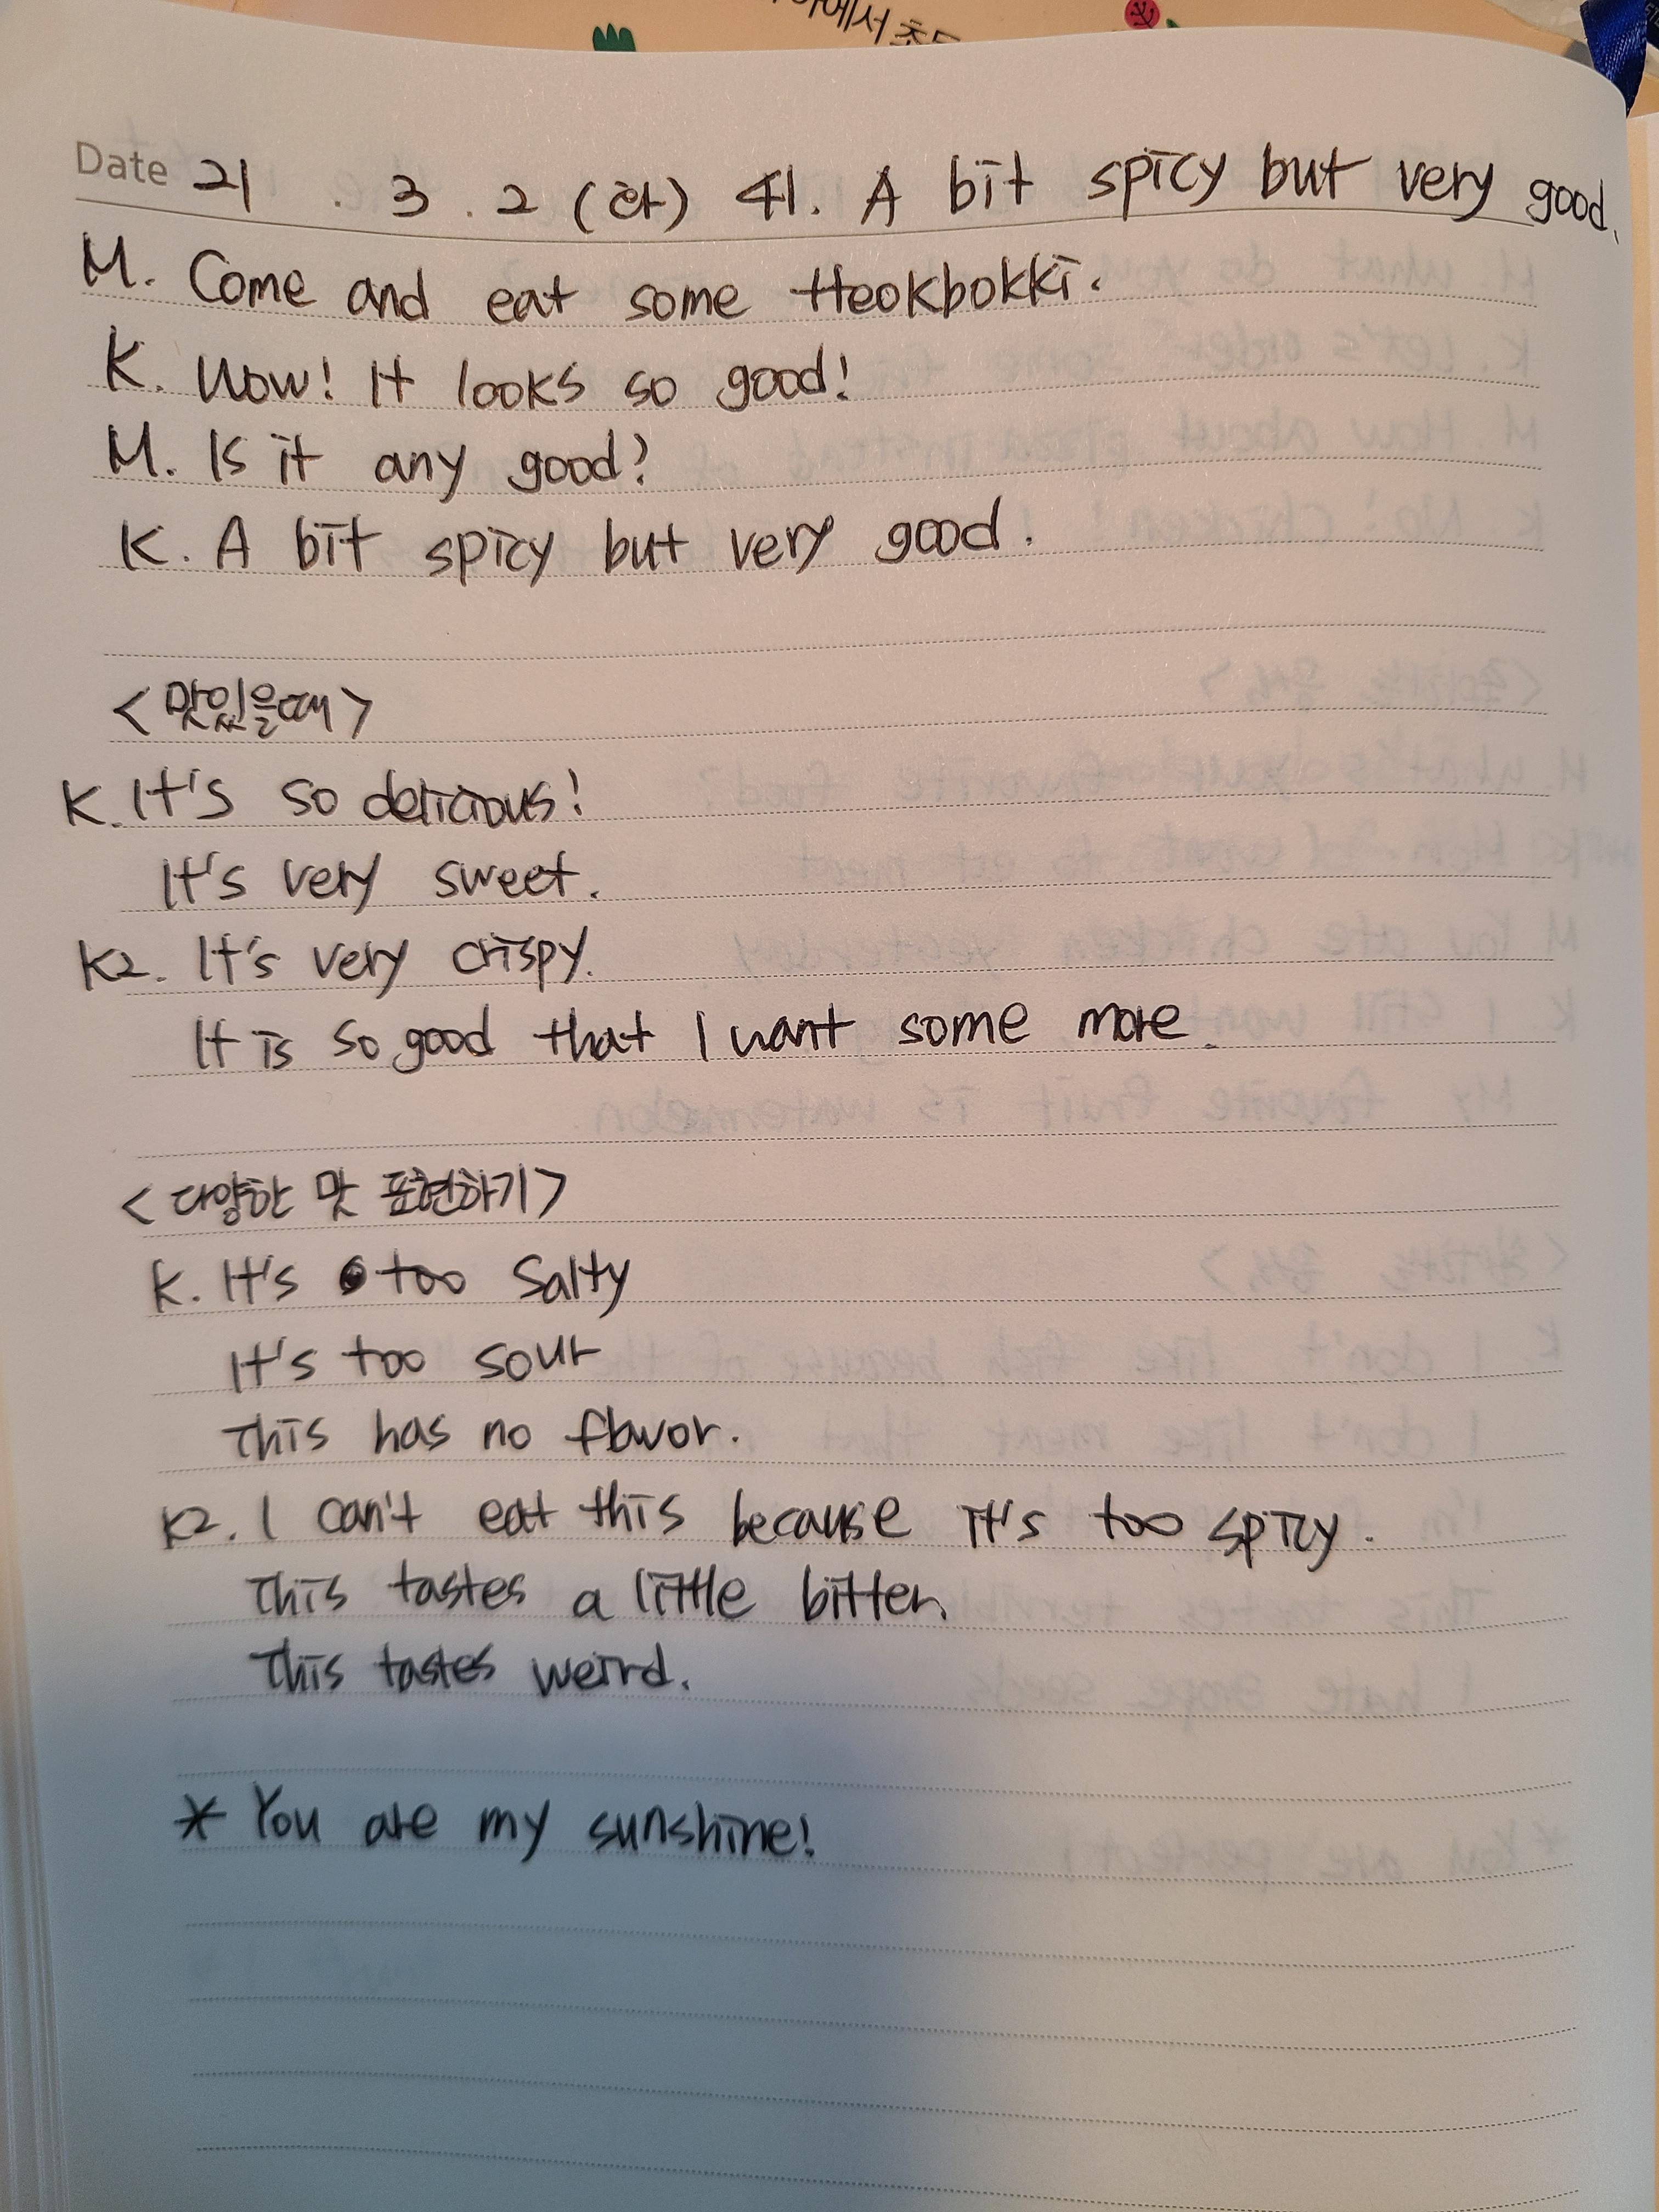 에서
Date 21 . 3 . 2 (화) 41. A bit spicy but very good.
M. Come and eat some tteokbokki.
K. Wow! It looks so good!
M. Is it any good?
K. A bit spicy but very good.
<맛있을때>
K. It's so delicious!
It's very sweet.
K2. It's very crispy.
It is so good that I want some more.
<다양한 맛 표현하기>
K. It's too salty
It's too sour
This has no flavor.
K2. I can't eat this because it's too spicy.
This tastes a little bitter.
This tastes weird.
* You are my sunshine!